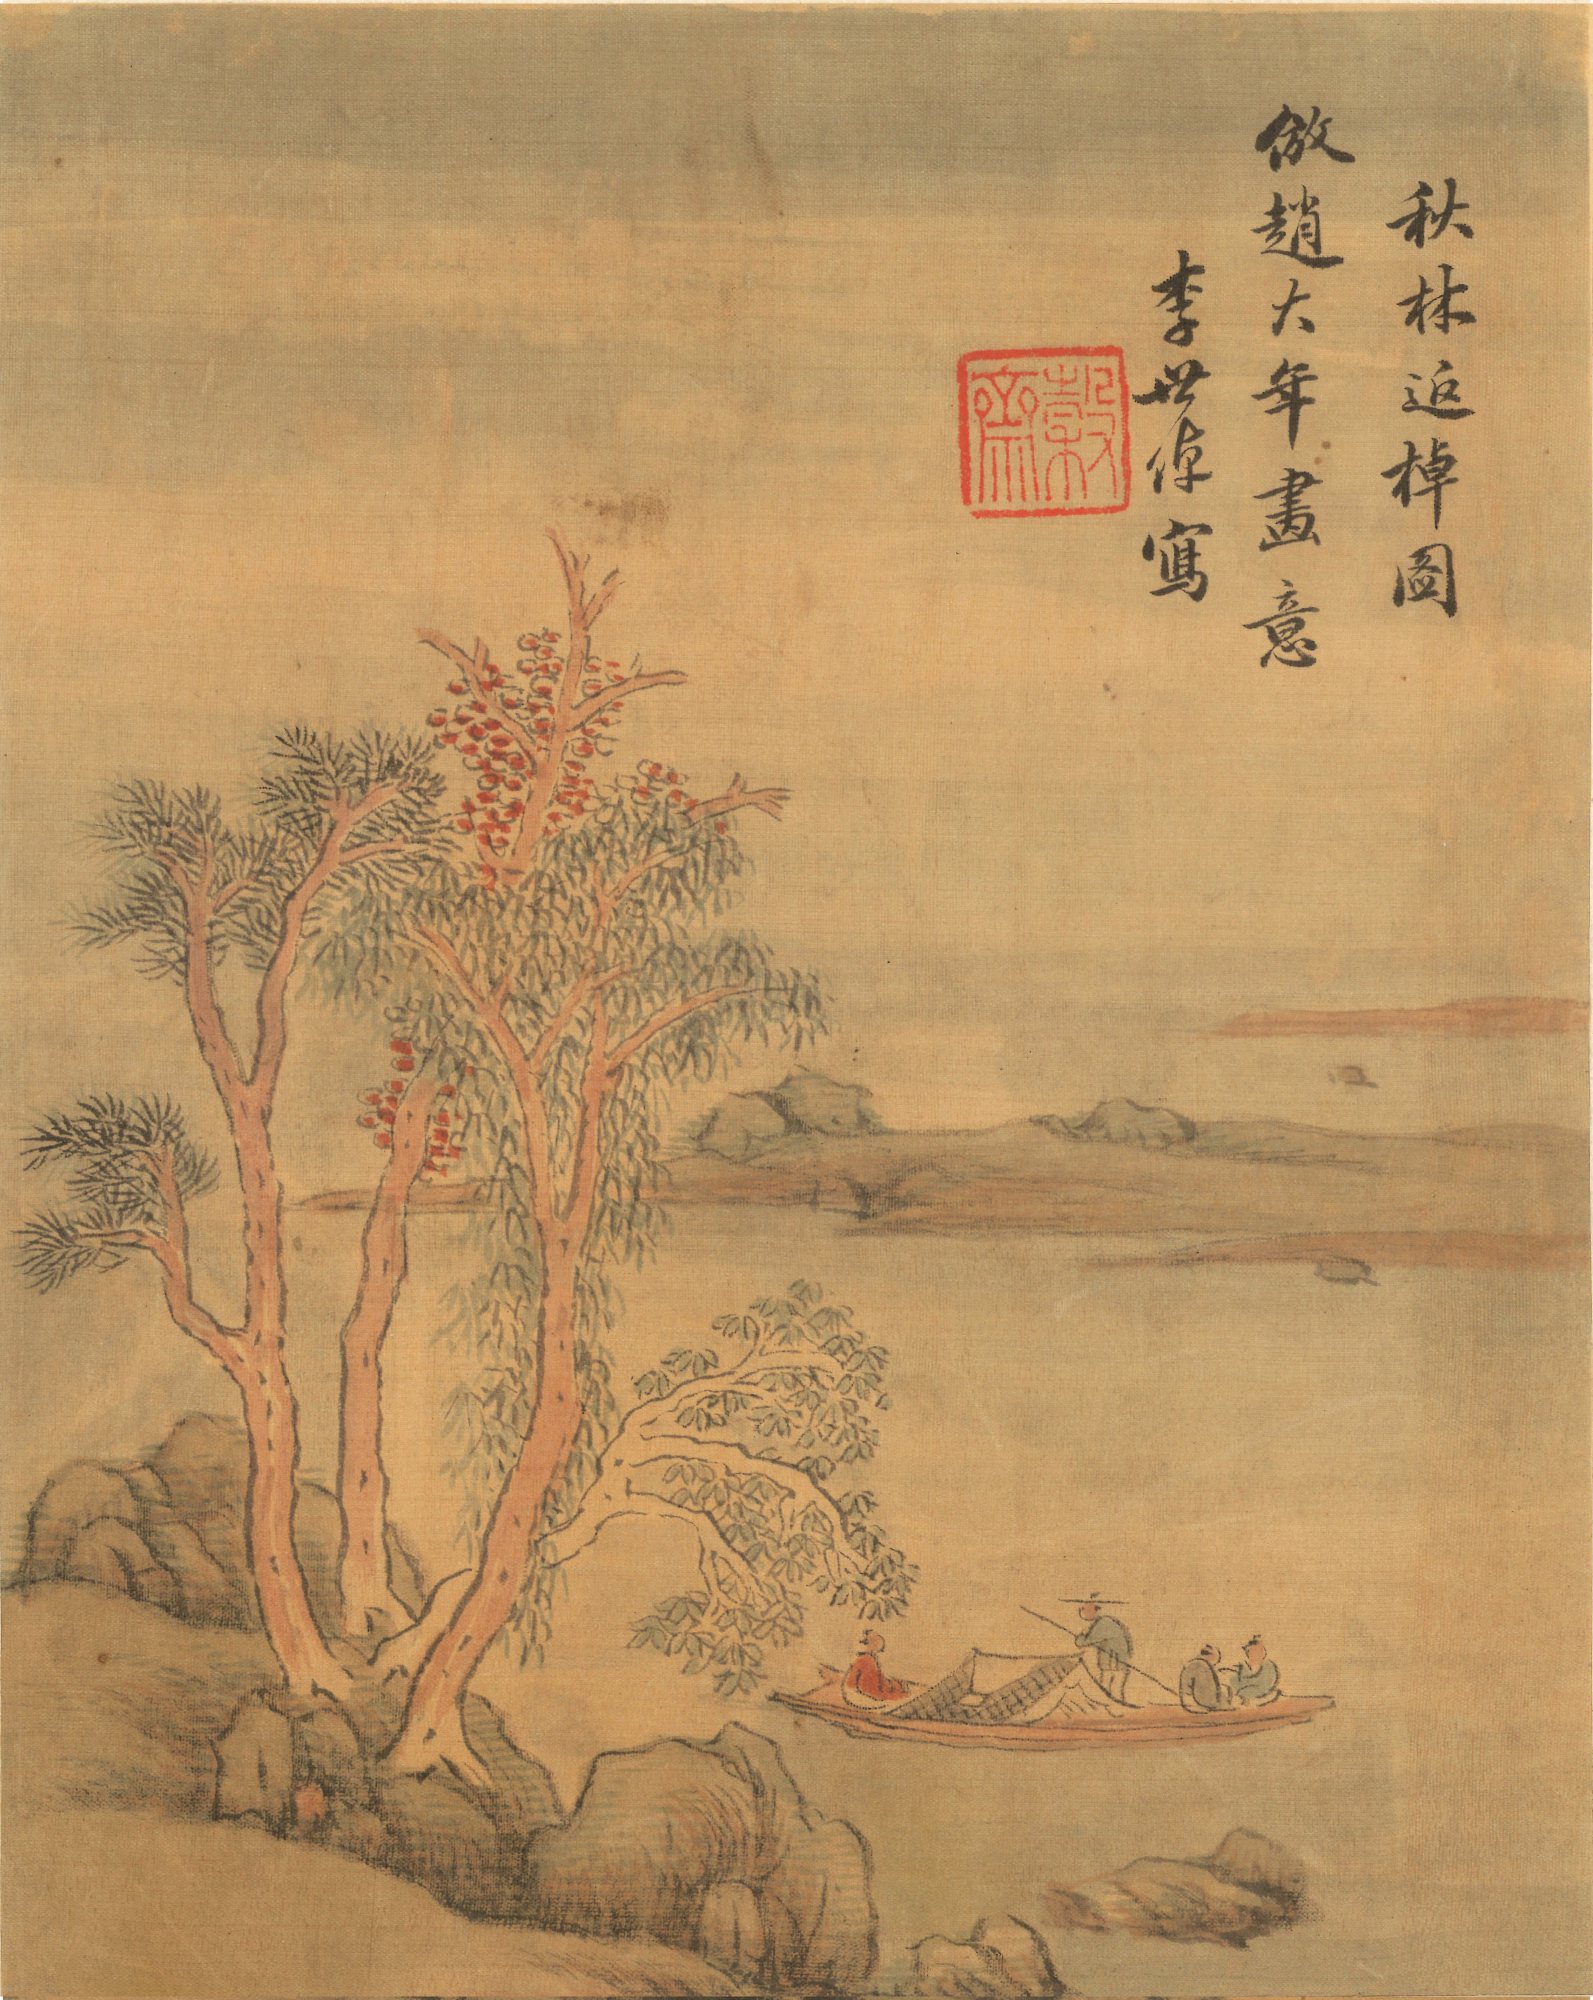 秋林返棹圖
倣趙大年畫意
李世倬寫
穀齋